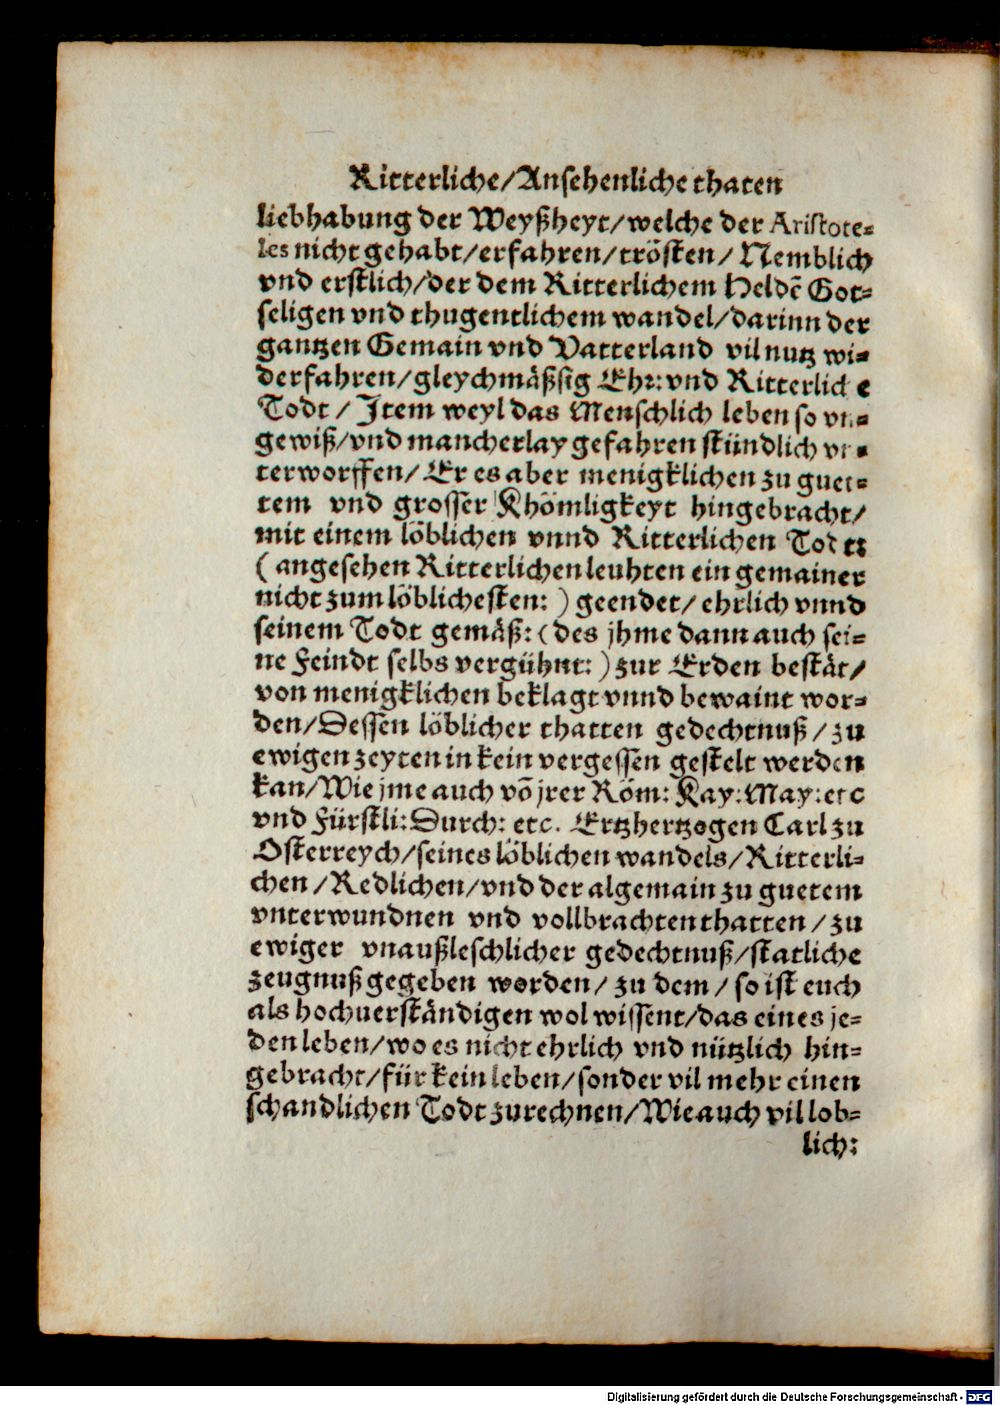 Ritterliche/Ansehenliche thaten
liebhabung der Weyßheyt/welche der Aristote-
les nicht gehabt/erfahren/trösten/ Nemblich
vnd erstlich/der dem Ritterlichem Heldē Got-
seligen vnd thugentlichem wandel/darinn der
gantzen Gemain vnd Vatterland vil nutz wi-
derfahren/gleychmässig Ehr: vnd Ritterlich e
Todt / Item weyl das Menschlich leben so vn-
gewiß/vnd mancherlay gefahren stündlich vn-
terworffen/ Er es aber menigklichen zu gue-
tem vnd grosser Khömligkeyt hingebracht/
mit einem löblichen vnnd Ritterlichen Todt
( angesehen Ritterlichen leuhten ein gemainer
nicht zum löblichesten: ) geendet/ ehrlich vnnd
seinem Todt gemäß: ( des jhme dann auch sei-
ne Feindt selbs vergühnt: ) zur Erden bestät/
von menigklichen beklagt vnnd bewaint wor-
den/Dessen löblicher thatten gedechtnuß / zu
ewigen zeyten in kein vergessen gestelt werden
kan/Wie jme auch vō jrer Röm: Kay: May: etc
vnd Fürstli: Durch: etc. Ertzhertzogen Carl zu
Osterreych/seines löblichen wandels/Ritterli-
chen /Redlichen/vnd der algemain zu guetem
vnterwundnen vnd vollbrachten thatten / zu
ewiger vnaußleschlicher gedechtnuß/statliche
zeugnuß gegeben worden/ zu dem / so ist euch
als hochuerständigen wol wissent/das eines je-
den leben/wo es nicht ehrlich vnd nützlich hin-
gebracht/für kein leben/sonder vil mehr einen
schandlichen Todt zurechnen/Wie auch vil lob-
lich:
Digitalisierung gefördert durch die Deutsche Forschungsgemeinschaft - DFG